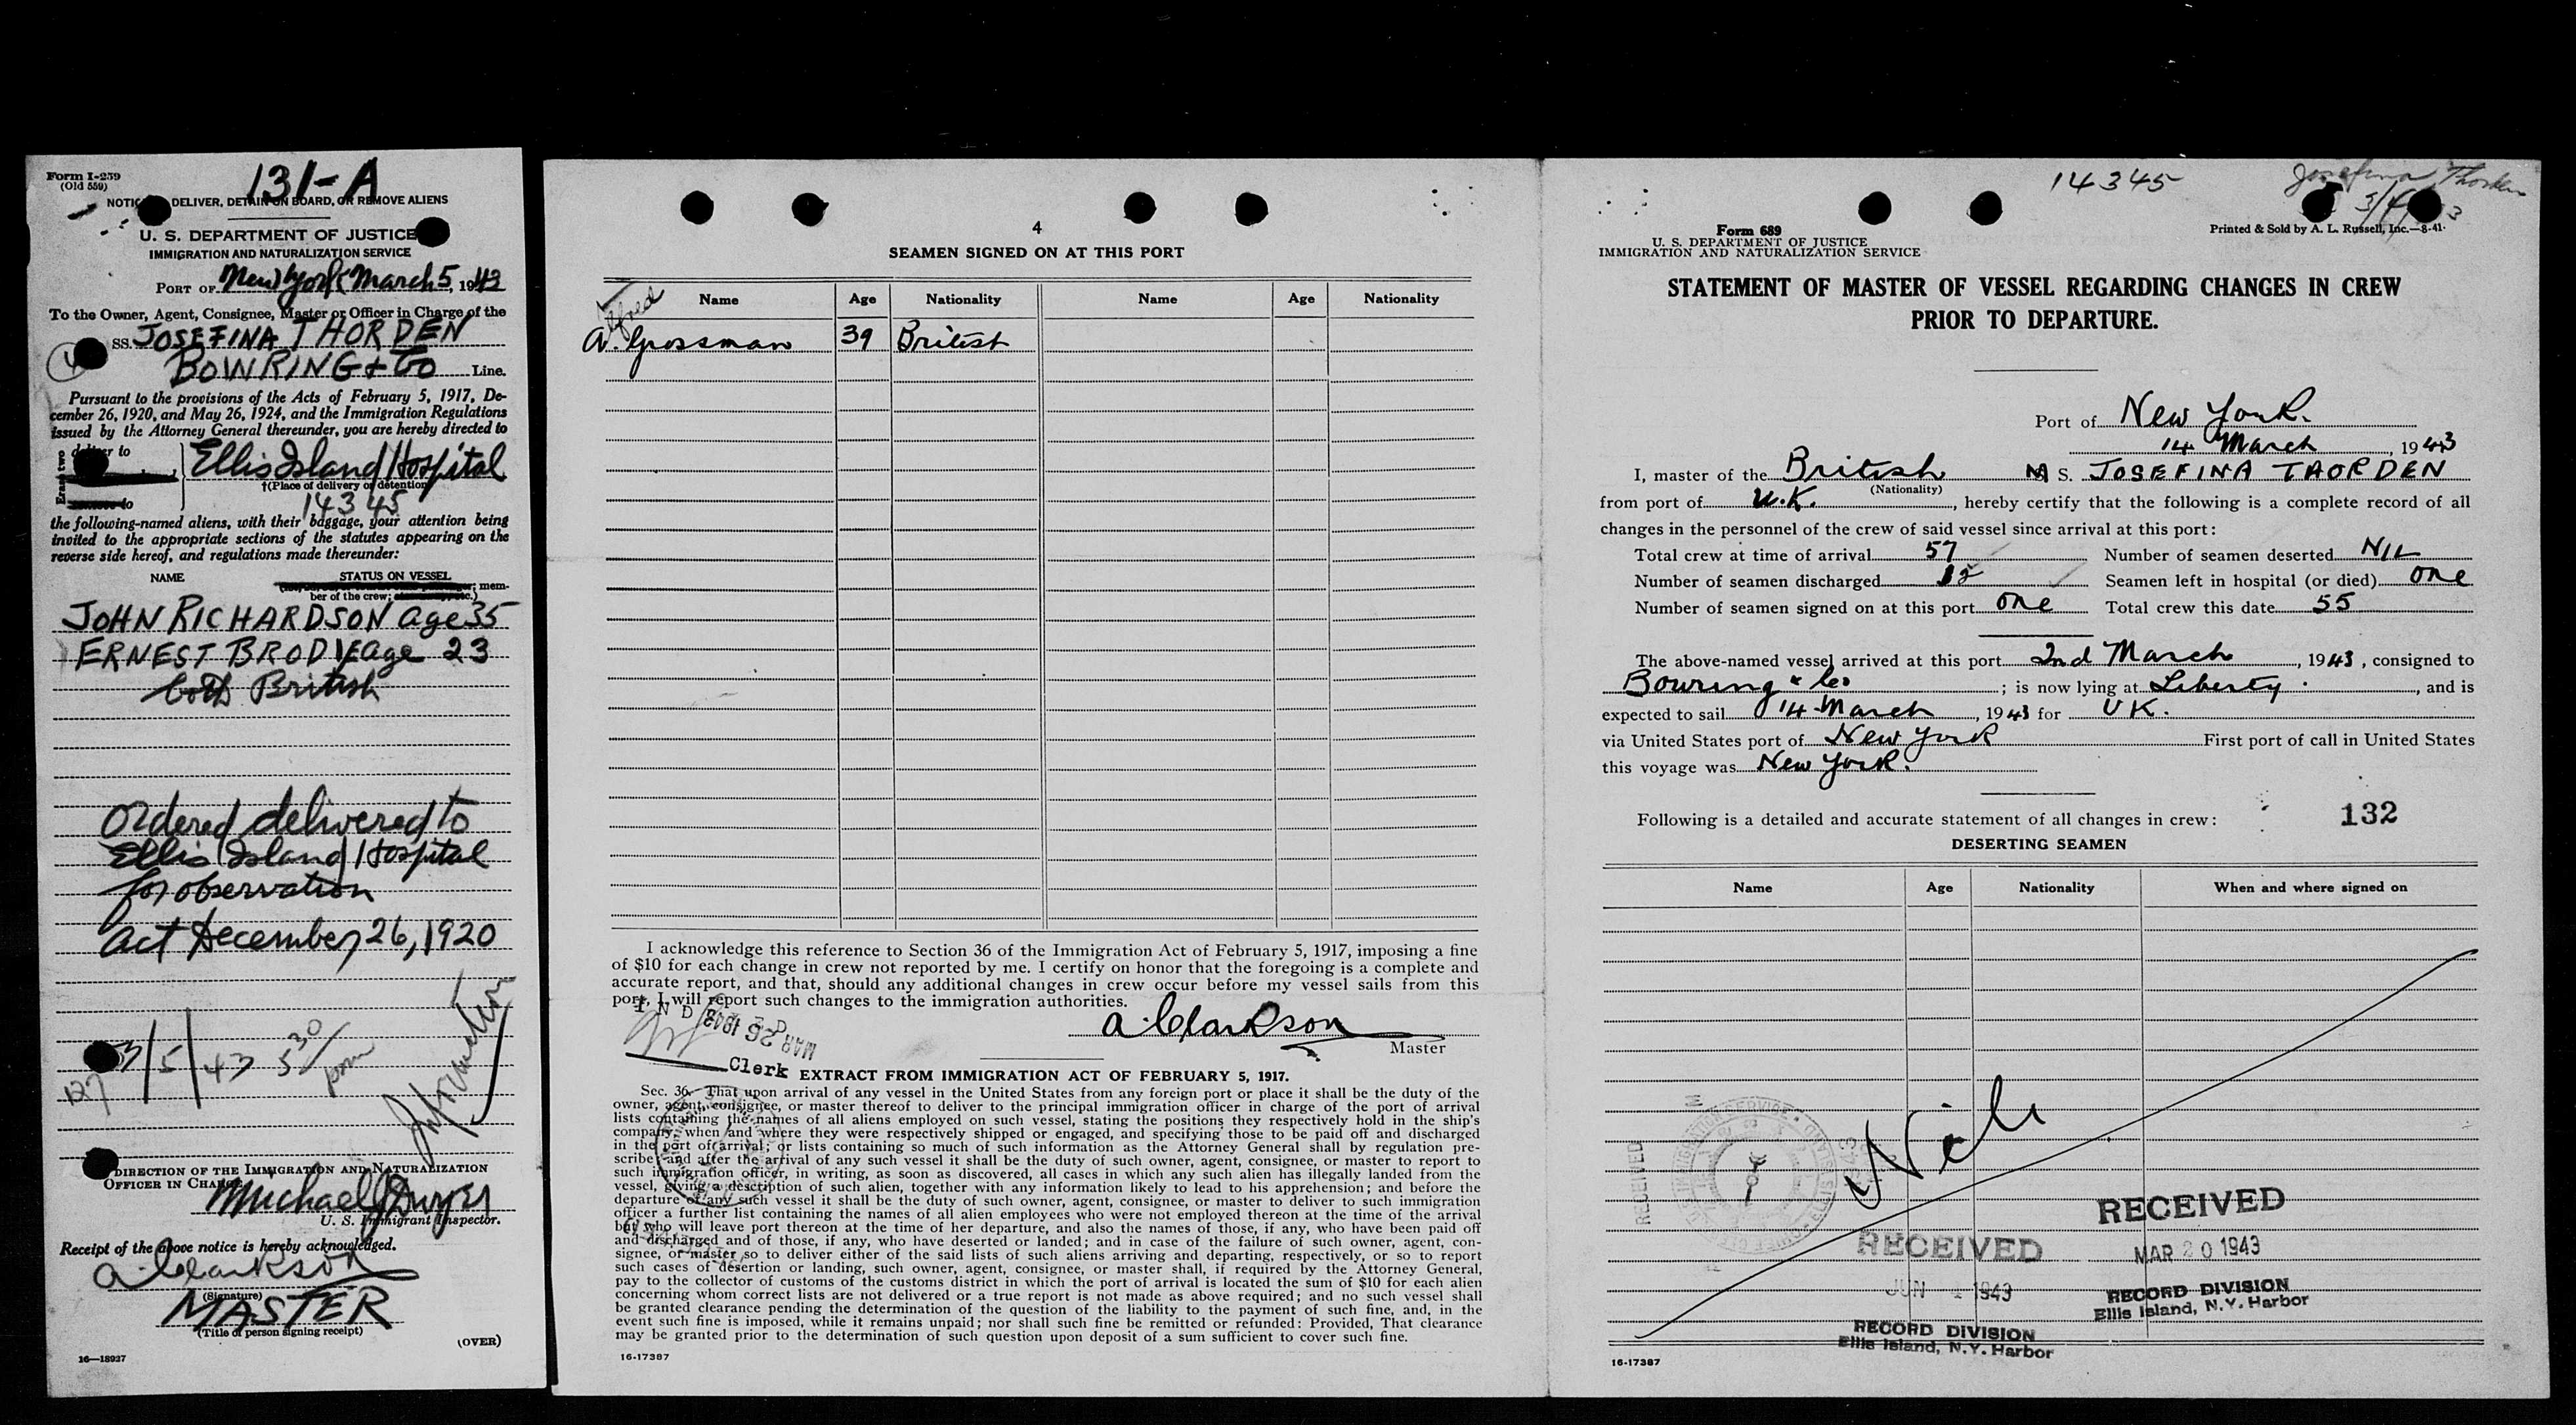 Form I-259
(Old 559)
131-A
NOTICE DELIVER, DETAIN ON BOARD, OR REMOVE ALIENS
U. S. DEPARTMENT OF JUSTICE
IMMIGRATION AND NATURALIZATION SERVICE
PORT OF New York March 5, 1943
To the Owner, Agent, Consignee, Master or Officer in Charge of the
SS. JOSEFINA THORDEN
BOWRING & Co Line.
Pursuant to the provisions of the Acts of February 5, 1917, De-
cember 26, 1920, and May 26, 1924, and the Immigration Regulations
issued by the Attorney General thereunder, you are hereby directed to
Erase two
Ellis Island Hospital
†(Place of delivery or detention)
to
14345
the following-named aliens, with their baggage, your attention being
invited to the appropriate sections of the statutes appearing on the
reverse side hereof, and regulations made thereunder:
NAME STATUS ON VESSEL
mem-
ber of the crew;
JOHN RICHARDSON age 35
ERNEST BRODIE age 23
both British
Ordered delivered to
Ellis Island Hospital
for observation
Act December 26, 1920
3/5/43 5 30/pm
127
DIRECTION OF THE IMMIGRATION AND NATURALIZATION
OFFICER IN CHARGE
Michael J Dwyer
U. S. Immigrant Inspector.
Receipt of the above notice is hereby acknowledged.
A. Clarkson
(Signature)
MASTER
(Title of person signing receipt)
(OVER)
16—18927
4
SEAMEN SIGNED ON AT THIS PORT
Name Age Nationality Name Age Nationality
Alfred
A. Grossman 39 British
I acknowledge this reference to Section 36 of the Immigration Act of February 5, 1917, imposing a fine
of $10 for each change in crew not reported by me. I certify on honor that the foregoing is a complete and
accurate report, and that, should any additional changes in crew occur before my vessel sails from this
port, I will report such changes to the immigration authorities.
MAR 26 1943
A. Clarkson
Master
Clerk
EXTRACT FROM IMMIGRATION ACT OF FEBRUARY 5, 1917.
Sec. 36. That upon arrival of any vessel in the United States from any foreign port or place it shall be the duty of the
owner, agent, consignee, or master thereof to deliver to the principal immigration officer in charge of the port of arrival
lists containing the names of all aliens employed on such vessel, stating the positions they respectively hold in the ship's
company, when and where they were respectively shipped or engaged, and specifying those to be paid off and discharged
in the port of arrival; or lists containing so much of such information as the Attorney General shall by regulation pre-
scribe; and after the arrival of any such vessel it shall be the duty of such owner, agent, consignee, or master to report to
such immigration officer, in writing, as soon as discovered, all cases in which any such alien has illegally landed from the
vessel, giving a description of such alien, together with any information likely to lead to his apprehension; and before the
departure of any such vessel it shall be the duty of such owner, agent, consignee, or master to deliver to such immigration
officer a further list containing the names of all alien employees who were not employed thereon at the time of the arrival
but who will leave port thereon at the time of her departure, and also the names of those, if any, who have been paid off
and discharged and of those, if any, who have deserted or landed; and in case of the failure of such owner, agent, con-
signee, or master so to deliver either of the said lists of such aliens arriving and departing, respectively, or so to report
such cases of desertion or landing, such owner, agent, consignee, or master shall, if required by the Attorney General,
pay to the collector of customs of the customs district in which the port of arrival is located the sum of $10 for each alien
concerning whom correct lists are not delivered or a true report is not made as above required; and no such vessel shall
be granted clearance pending the determination of the question of the liability to the payment of such fine, and, in the
event such fine is imposed, while it remains unpaid; nor shall such fine be remitted or refunded: Provided, That clearance
may be granted prior to the determination of such question upon deposit of a sum sufficient to cover such fine.
16-17387
14345
Josefina Thorden
Form 689
U. S. DEPARTMENT OF JUSTICE
IMMIGRATION AND NATURALIZATION SERVICE
Printed & Sold by A. L. Russell, Inc.—8-41.
STATEMENT OF MASTER OF VESSEL REGARDING CHANGES IN CREW
PRIOR TO DEPARTURE.
Port of New York.
14 March, 1943
I, master of the British M S. JOSEFINA THORDEN
(Nationality)
from port of U.K., hereby certify that the following is a complete record of all
changes in the personnel of the crew of said vessel since arrival at this port:
Total crew at time of arrival 57 Number of seamen deserted NIL
Number of seamen discharged Seamen left in hospital (or died) one
Number of seamen signed on at this port one Total crew this date 55
The above-named vessel arrived at this port 2nd March, 1943, consigned to
Bowring & Co; is now lying at Liberty., and is
expected to sail 14 March, 1943 for UK.
via United States port of New York First port of call in United States
this voyage was New York.
Following is a detailed and accurate statement of all changes in crew:
132
DESERTING SEAMEN
Name Age Nationality When and where signed on
Nil
RECEIVED
RECEIVED
MAR 20 1943
RECORD DIVISION
Ellis Island, N.Y. Harbor
RECEIVED
JUN 4 1943
RECORD DIVISION
Ellis Island, N.Y. Harbor
16-17387